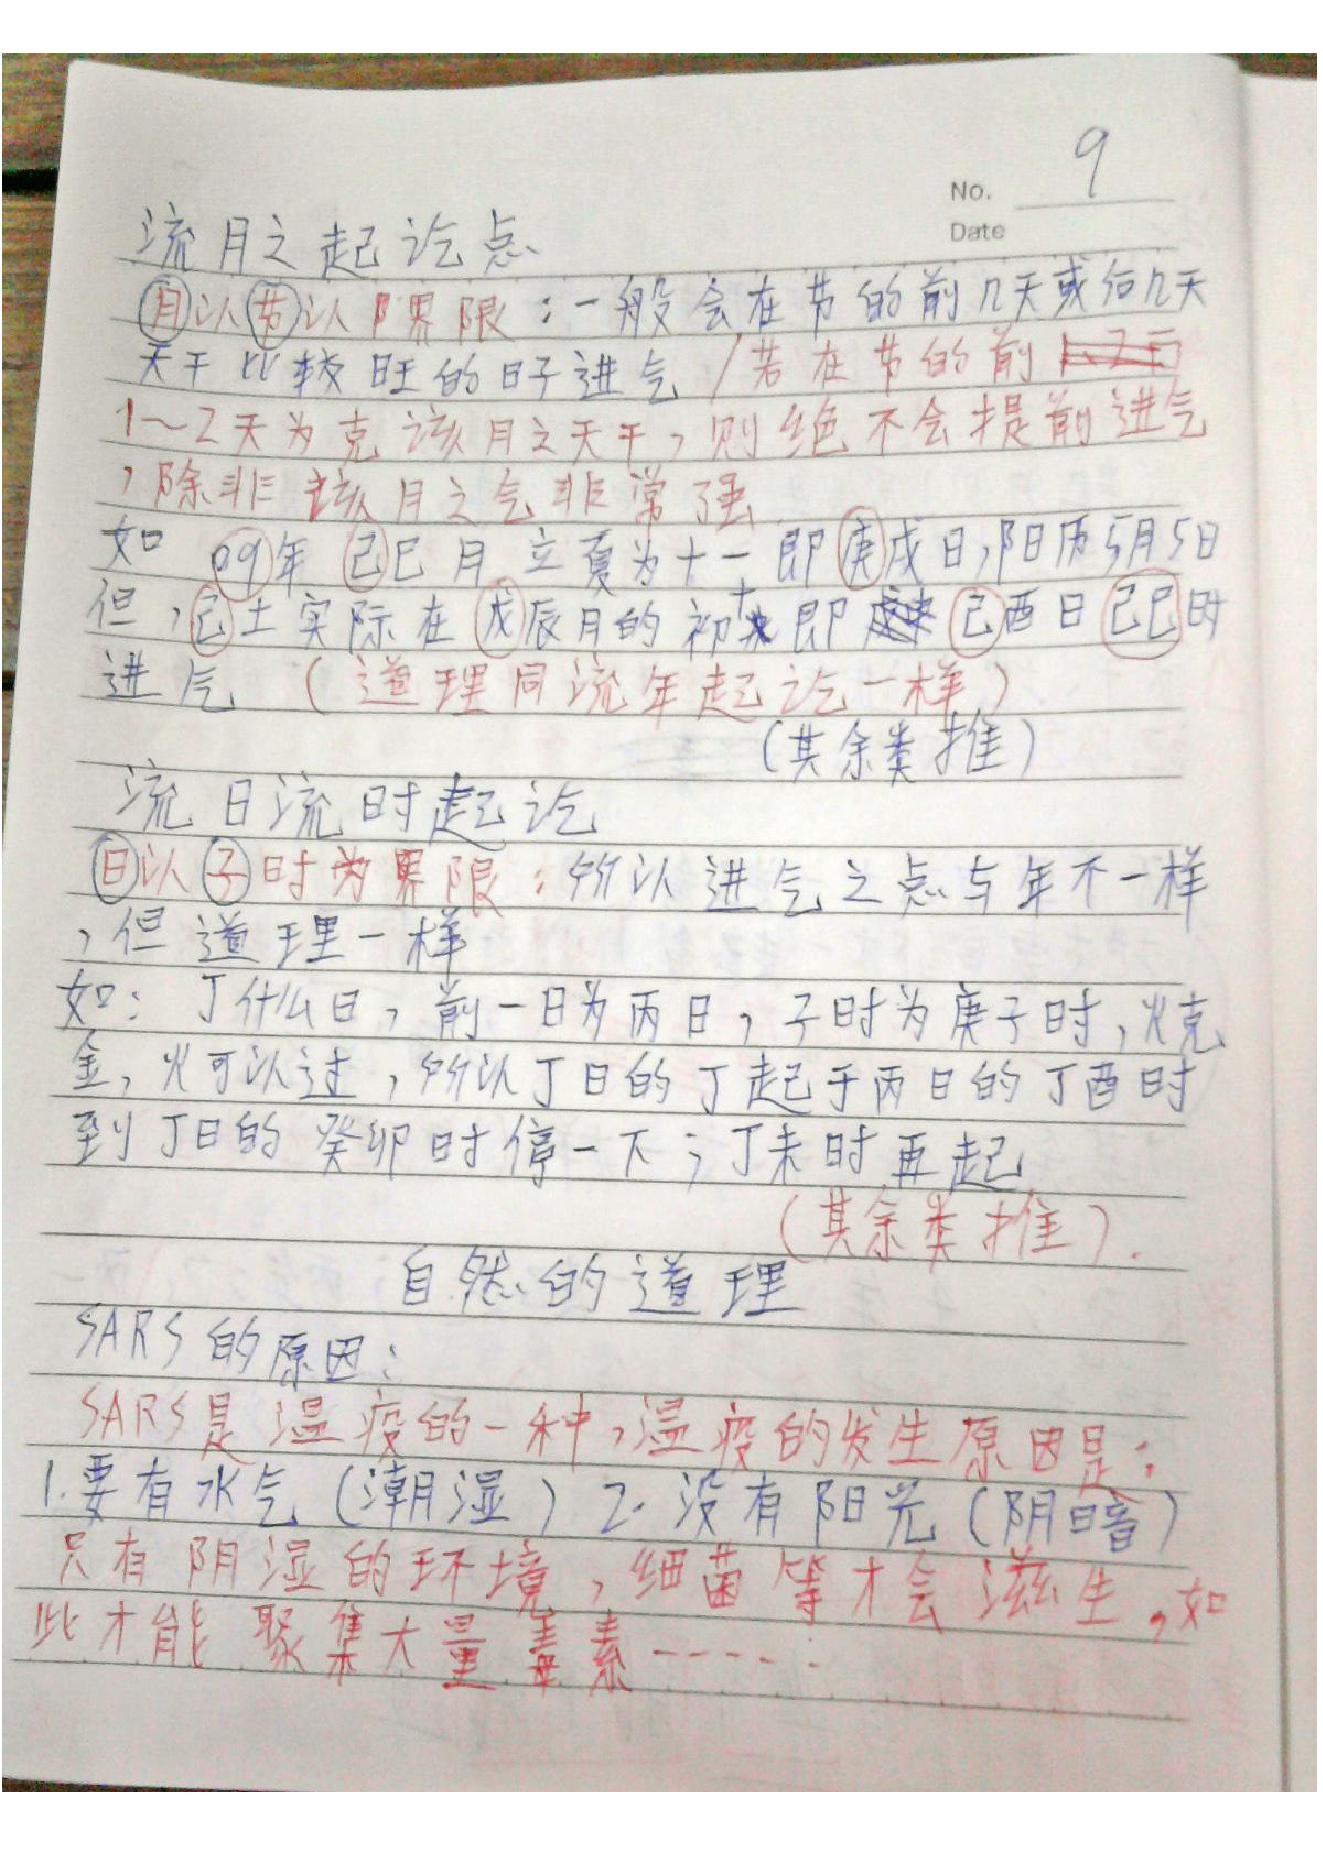 No. 9
Date
流月之起讫点
月以节以界限：一般会在节的前几天或后几天
天干比较旺的日子进气/若在节的前
1～2天为克该月之天干，则绝不会提前进气
，除非该月之气非常强
如 09年 己巳月 立夏为十一即庚戌日，阳历5月5日
但，己土实际在戊辰月的初十即己酉日己巳时
进气 （道理同流年起讫一样）
（其余类推）
流日流时起讫
日以子时为界限：所以进气之点与年不一样
，但道理一样
如：丁什么日，前一日为丙日，子时为庚子时，火克
金，火可以过，所以丁日的丁起于丙日的丁酉时
到丁日的癸卯时停一下；丁未时再起
（其余类推）.
自然的道理
SARS的原因：
SARS是温疫的一种，温疫的发生原因是：
1.要有水气（潮湿）2.没有阳光（阴暗）
只有阴湿的环境，细菌等才会滋生，如
此才能聚集大量毒素------